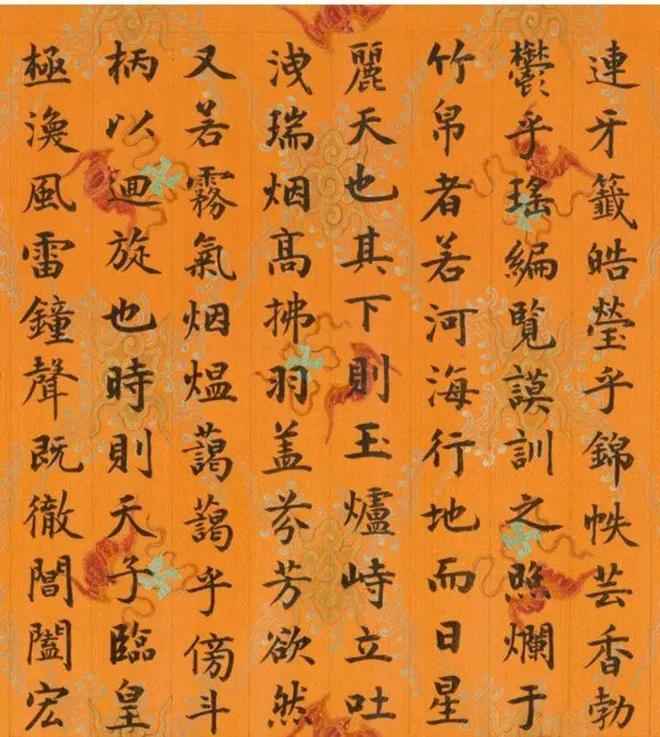 連牙籤皓瑩乎錦帙芸香勃
鬱乎瑤編覽謨訓之照爛于
竹帛者若河海行地而日星
麗天也其下則玉爐峙立吐
洩瑞烟高拂羽盖芬芳欲然
又若霧氣烟煴藹藹乎傍斗
柄以迴旋也時則天子臨皇
極渙風雷鐘聲既徹閶闔宏